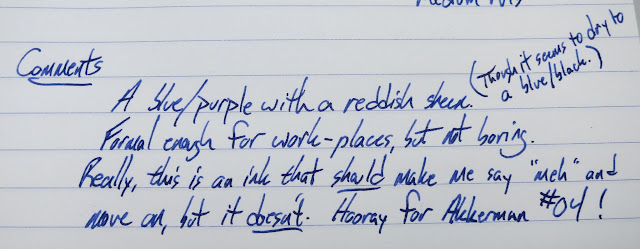 Comments
A blue/purple with a reddish sheen. (Though it seems to dry to
a blue/black.)
Formal enough for work-places, but not boring.
Really, this is an ink that should make me say "meh" and
move on, but it doesn't. Hooray for Akkerman #04!